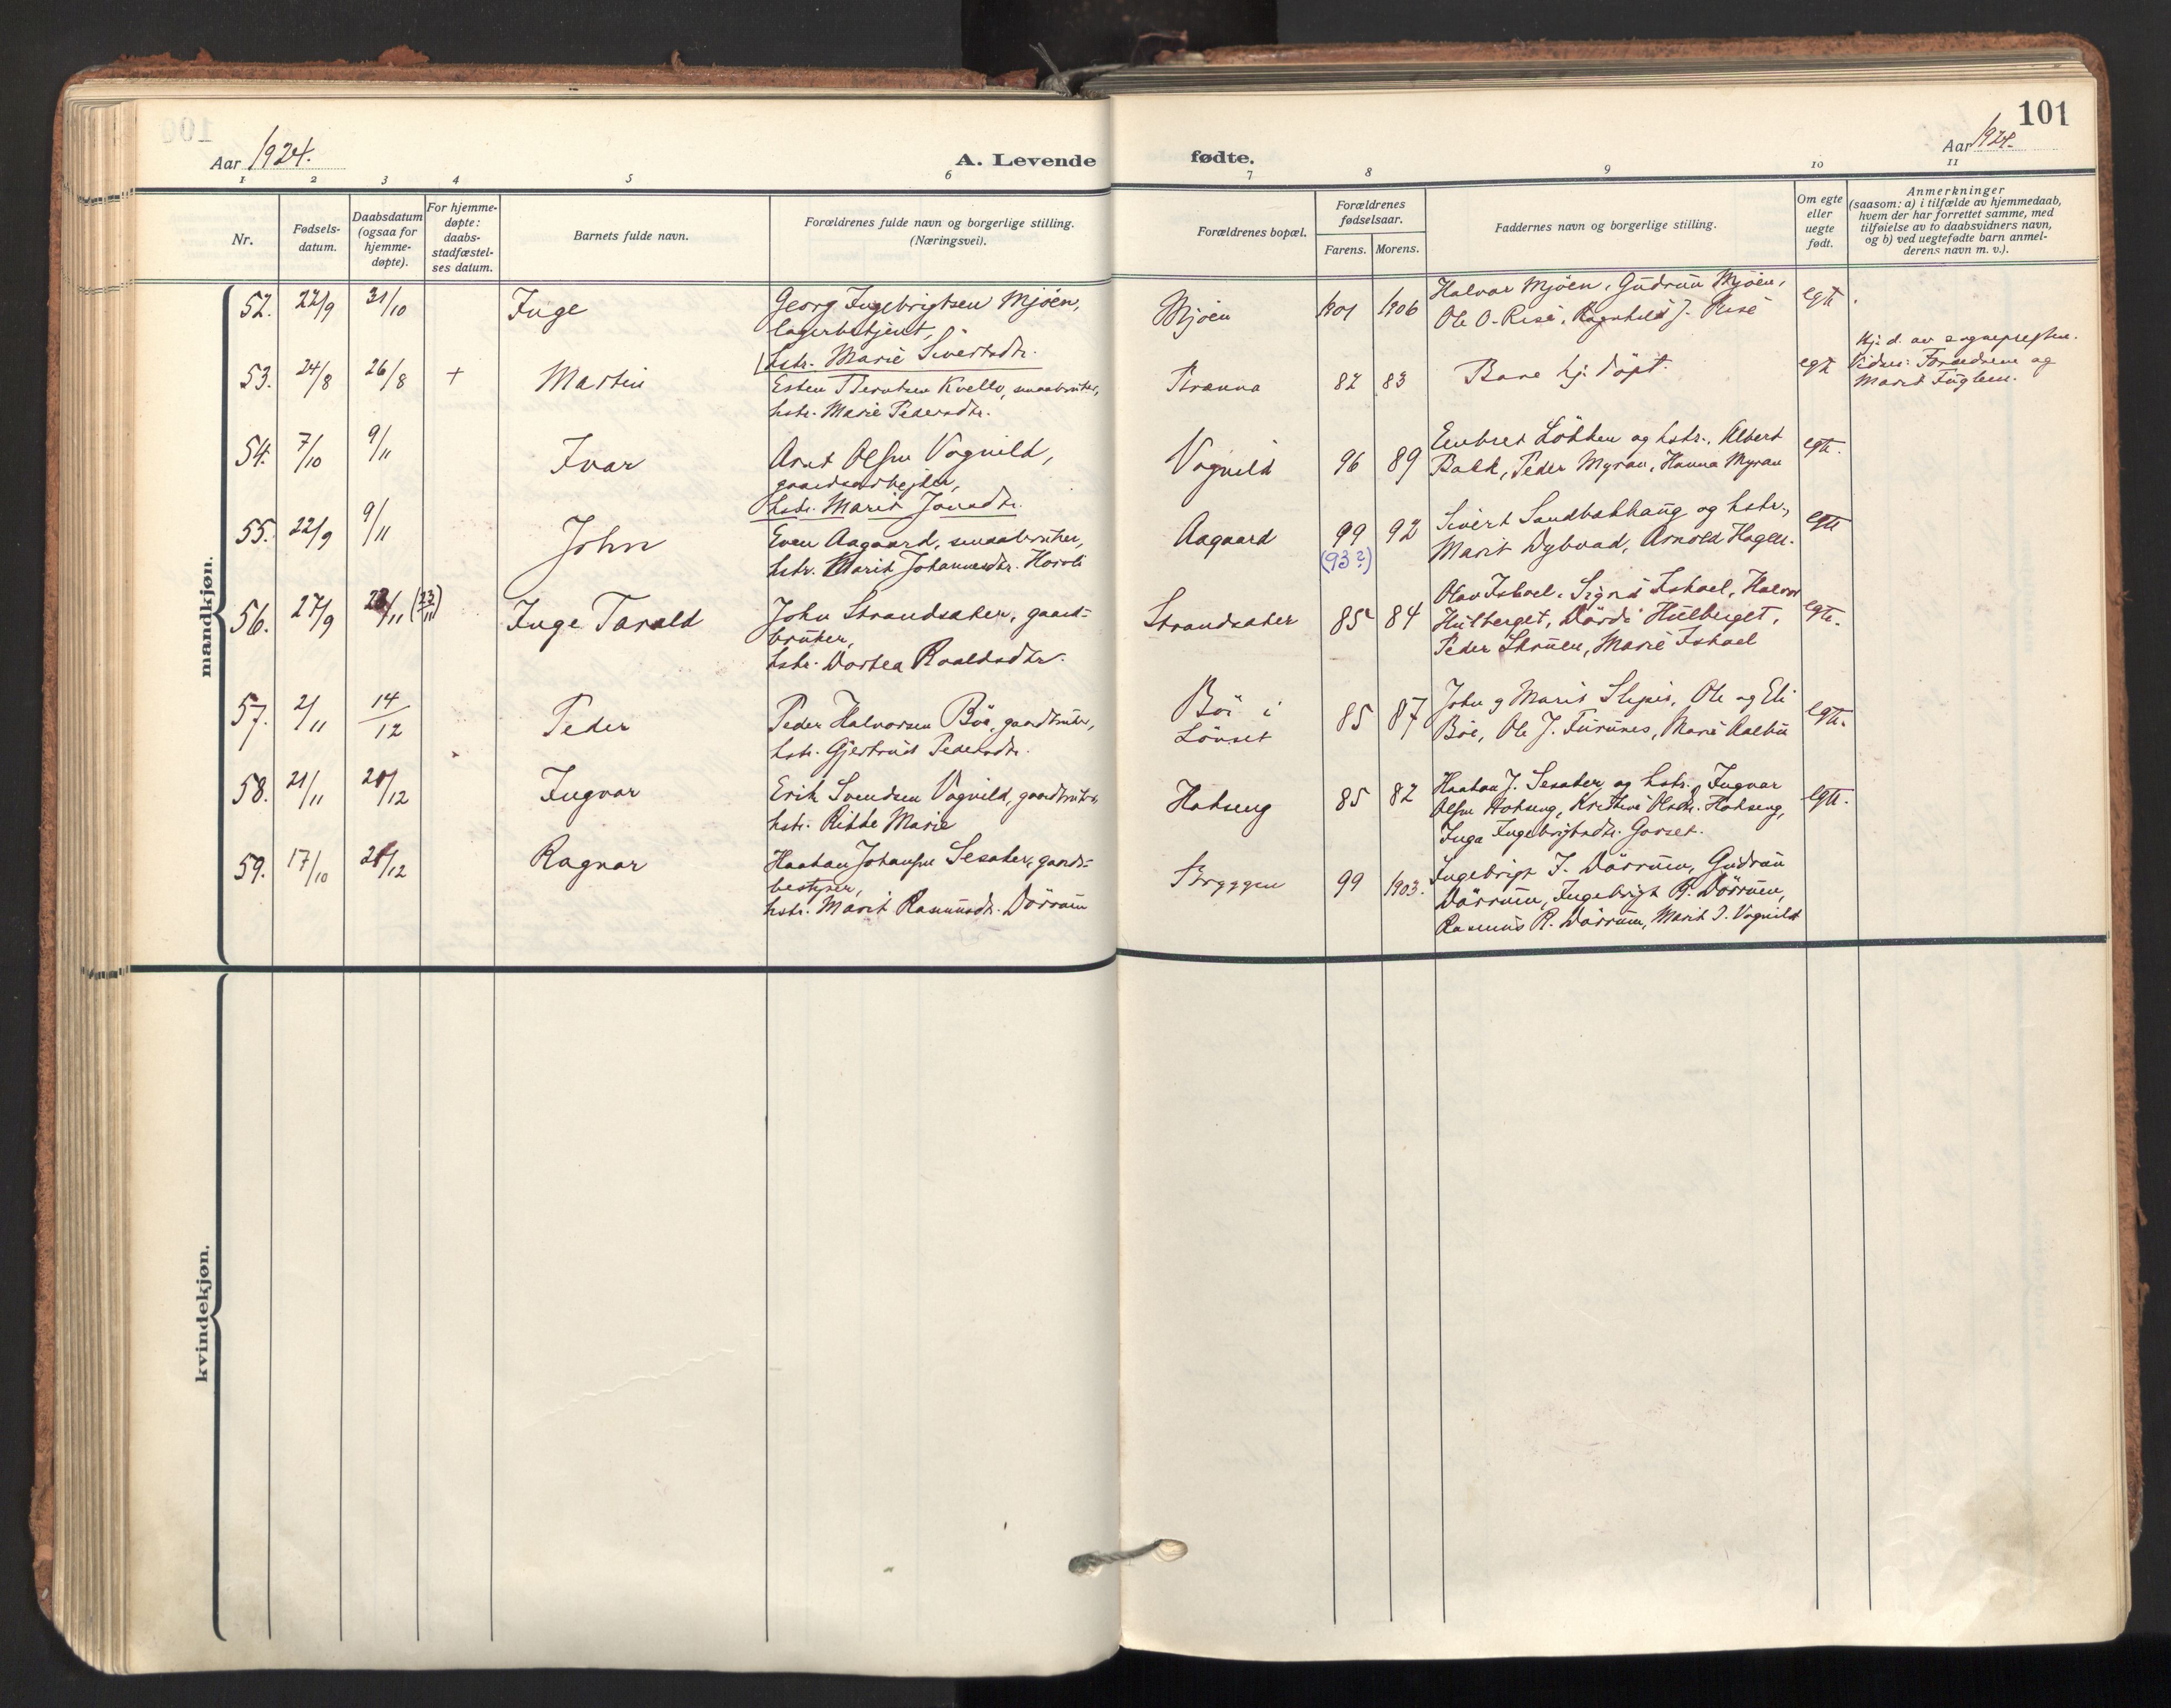 101
Aar 1924.
A. Levende fødte.
Aar 1924.
1 2 3 4 5 6 7 8 9 10 11
Nr.
Fødsels-
datum.
Daabsdatum
(ogsaa for
hjemme-
døpte).
For hjemme-
døpte:
daabs-
stadfæstel-
ses datum.
Barnets fulde navn.
Forældrenes fulde navn og borgerlige stilling.
(Næringsvei).
Forældrenes bopæl.
Forældrenes
fødselsaar.
Farens. Morens.
Faddernes navn og borgerlige stilling.
Om egte
eller
uegte
født.
Anmerkninger
(saasom: a) i tilfælde av hjemmedaab,
hvem der har forrettet samme, med
tilføielse av to daabsvidners navn,
og b) ved uegtefødte barn anmel-
derens navn m. v.).
mandkjøn.
52. 22/9 31/10 Inge
Georg Ingebrigtsen Mjöen,
lagerbetjent,
hstr. Marie Sivertsdtr.
Mjöen 1901 1906
Halvor Mjöen, Gudrun Mjöen,
Ole O. Rise, Ragnhild J. Rise
egte.
53. 24/8 26/8 + Martin
Esten Kvello, smaabruker,
hstr. Marie Pedersdtr.
82 83
Bare hj. döpt.
egte
Hj. d. av sognepresten.
Vidner: Forældrene og
Marit Fuglem.
54. 7/10 9/11 Ivar
Arnt Olsen Vognild,
gaardsarbejder,
hstr. Marit Jonsdtr.
Vognild 96 89
Embret Lökken og hstr., Albert
Peder Myran, Hanna Myran
egte.
55. 22/9 9/11 John
Even Aagaard, smaabruker,
hstr. Marit Johannesdtr. Horvli
Aagaard 99 92
(93?)
Sivert Sandbækhaug og hstr.,
Marit Dybvad, Arnold Hagen.
egte
56. 27/9 23/11 (23/11) Inge Tarald
John Strandsaker, gaard-
bruker,
hstr. Dortea Roaldsdtr.
Strandsaker 85 84
Olav Ishoel, Signe Ishoel, Halvor
Hulberget, Dördi Hulberget,
Peder Skruen, Marie Ishoel
egte.
57. 2/11 14/12 Peder
Peder Halvorsen Böe, gaardbruker,
hstr. Gjertrud Pedersdtr.
Böe i
Lönset
85 87
John og Marit Slipes, Ole og Eli
Böe, Ole J. Furunes, Marie Aalbu
egte.
58. 21/11 21/12 Ingvar
Erik Svendsen Vognild, gaardbruker,
hstr. Marie
Hokseng 85 82
Haakon J. Sesaker og hstr., Ingvar
Olsen Hokseng, Kristine Olsdtr. Hokseng,
Inga Ingebrigtsdtr. Gorset.
egte.
59. 17/10 21/12 Ragnar
Haakon Johansen Sesaker, gaards-
bestyrer,
hstr. Marit Rasmusdtr. Dörrum
Bryggen 99 1903.
Ingebrigt I. Dörrum, Gudrun
Dörrum, Ingebrigt R. Dörrum,
Rasmus R. Dörrum, Marit I. Vognild
kvindekjøn.